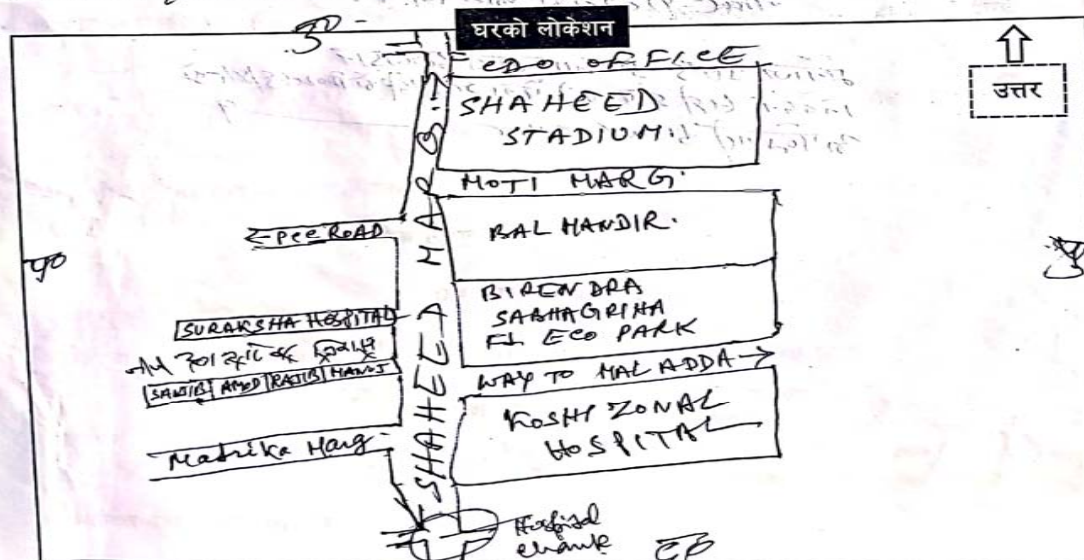 घरको लोकेशन
उ०
उत्तर
CDO OFFICE
SHAHEED
STADIUM
MOTI MARG.
SHAHEED MARG
PCC ROAD
BAL MANDIR.
BIRENDRA
SABHAGRIHA
ECO PARK
SURAKSHA HOSPITAL
SANJIB AMOD RAJIB MANOJ
WAY TO MAL ADDA →
KOSHI ZONAL
HOSPITAL
Matrika Marg
Hospital
chowk